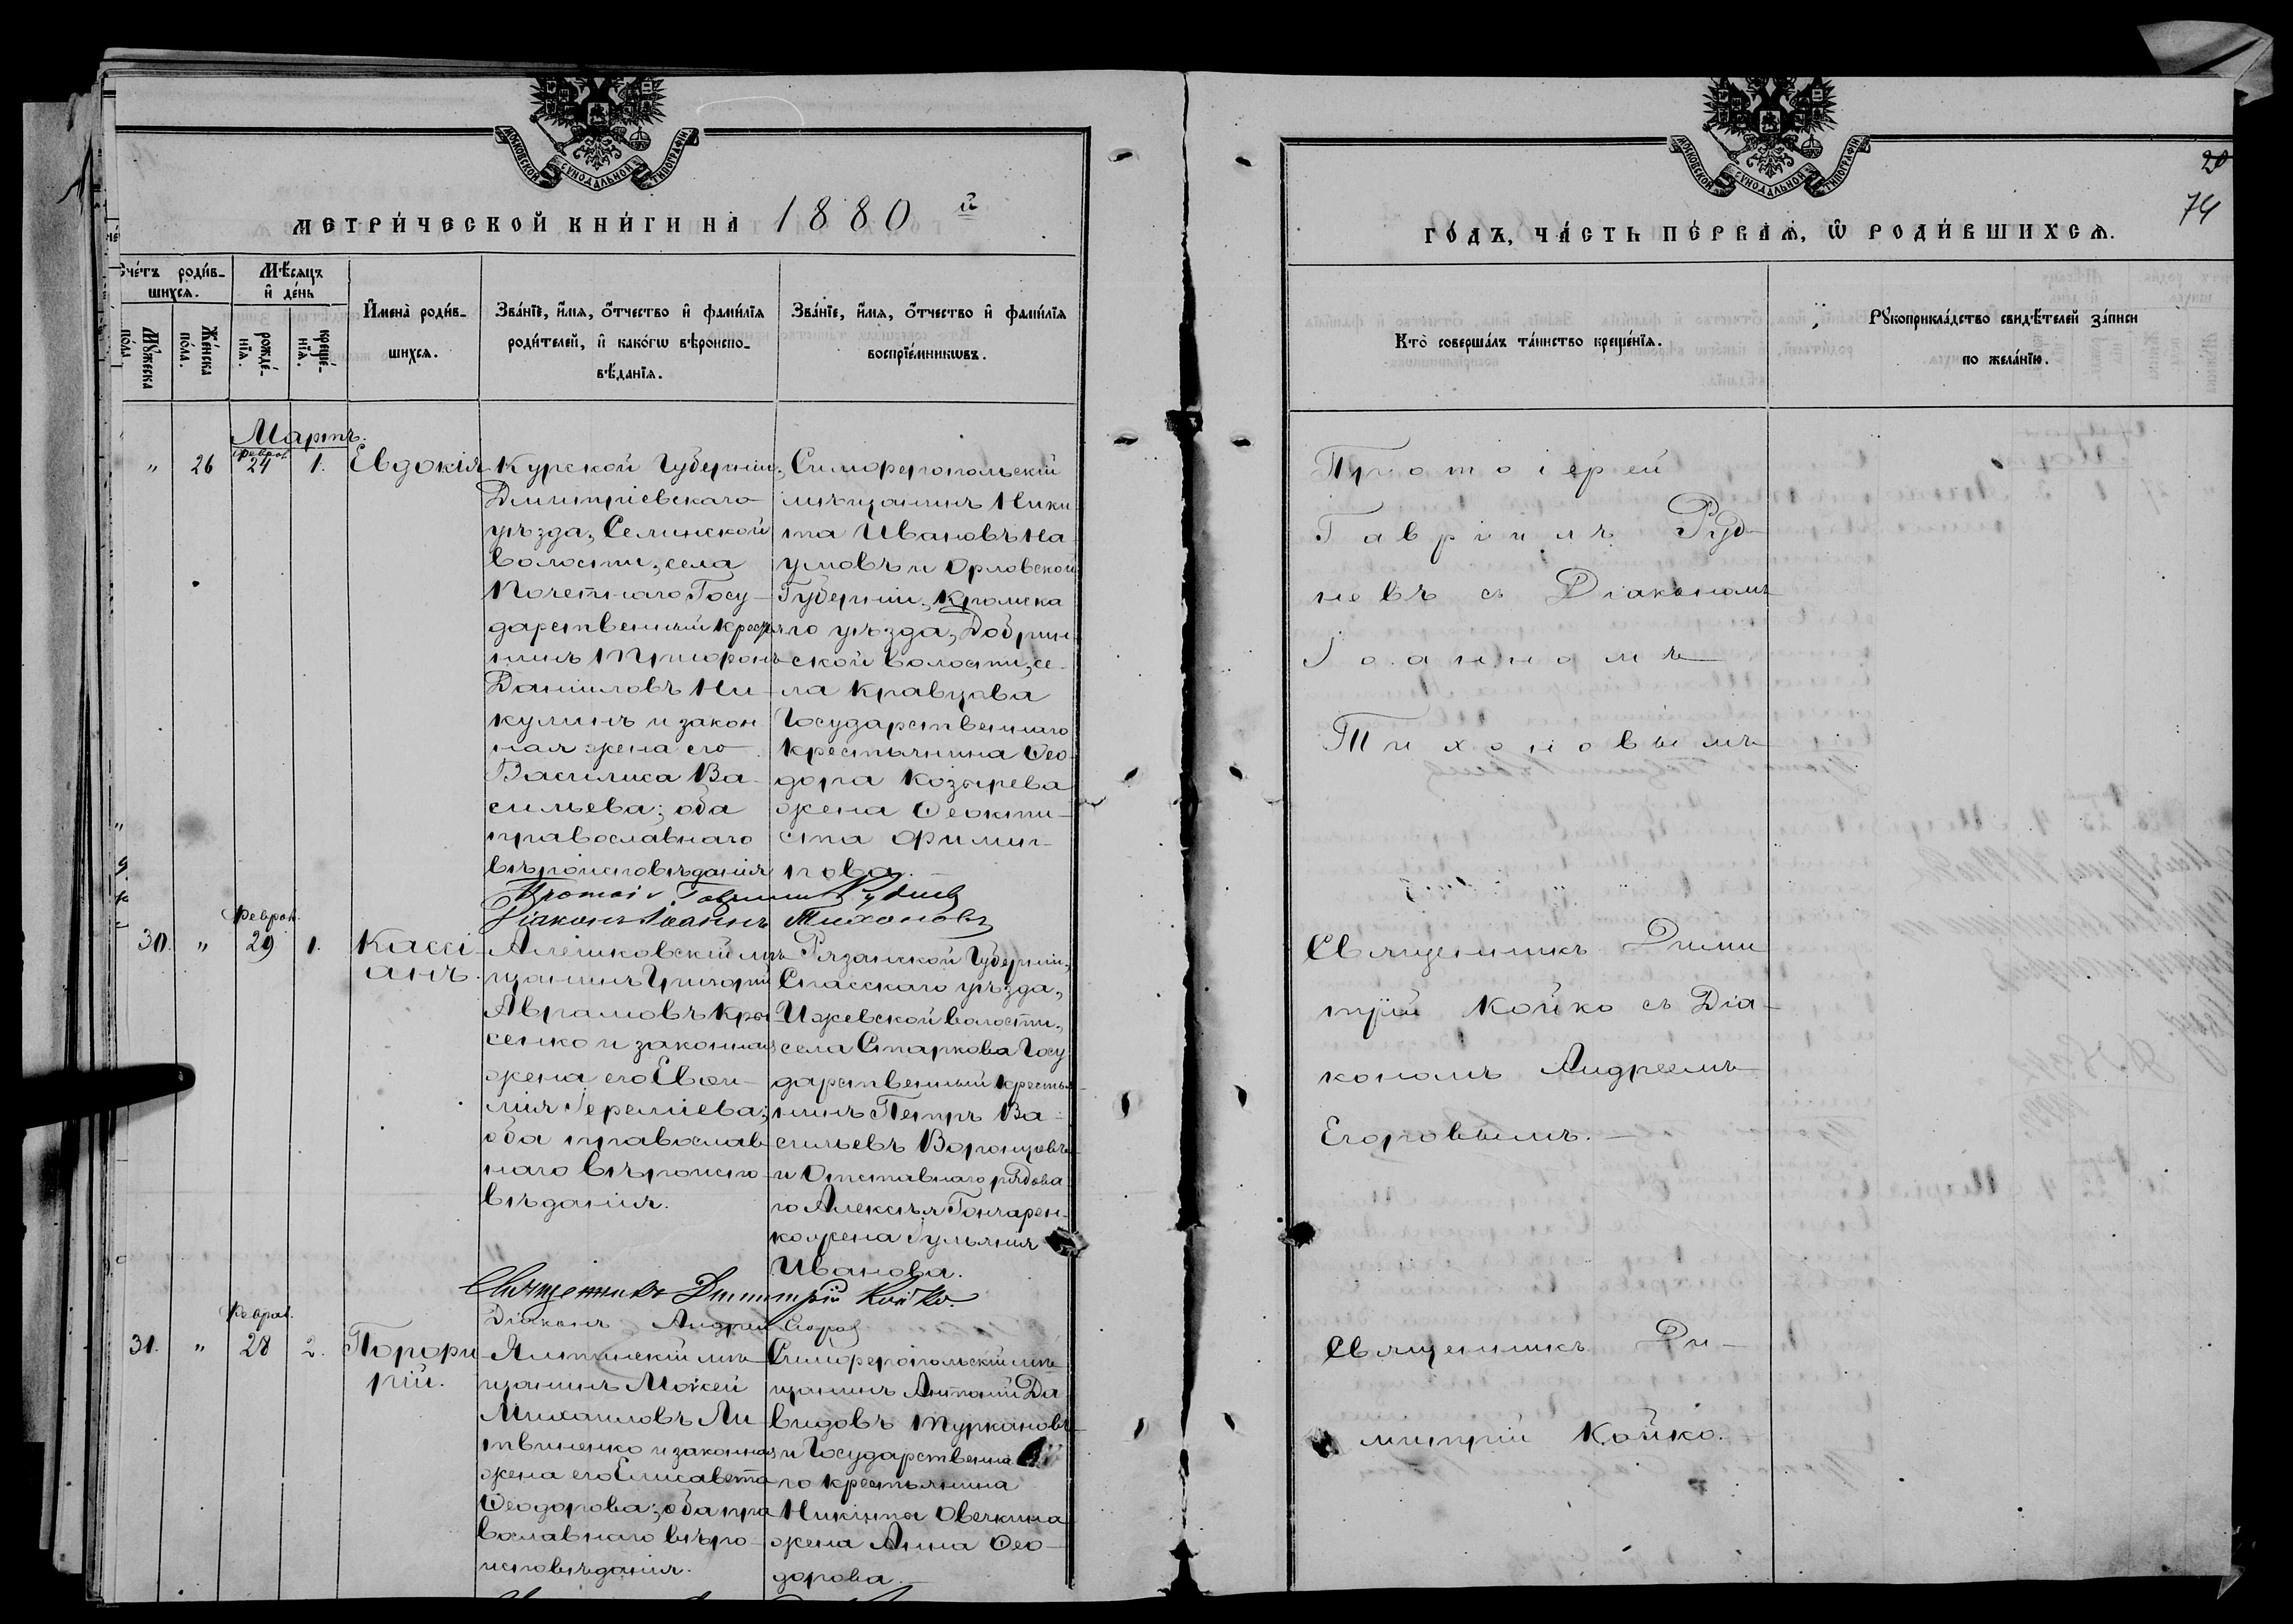 МОСКОВСКОЙ СѴНОДАЛЬНОЙ ТИПОГРАФІИ
МЕТРИ́ЧЕСКОЙ КНИ́ГИ НА 1880 й
Сче́тъ роди́в-
шихсѧ.
Мꙋжеска
по́ла.
Же́нска
по́ла.
Мѣ́сѧцъ
и҆ де́нь
рожде́-
нїѧ.
креще́-
нїѧ.
И҆мена̀ роди́в-
шихсѧ.
Зва́нїе, и҆́мѧ, ѻ҆́тчество и҆ фами́лїѧ
роди́телей, и҆ како́гѡ вѣроиспо-
вѣ́данїѧ.
Зва́нїе, и҆́мѧ, ѻ҆́тчество и҆ фами́лїѧ
воспрїе́мникѡвъ.
Мартъ.
„ 26
Феврал.
24 1.
Евдокія
Курской Губерніи,
Дмитріевскаго
уѣзда, Селинской
волости, села
Почетнаго Госу-
дарственный кресть
нинъ Трифонъ
Даниловъ Ни-
кулинъ и закон
ная жена его
Василиса Ва-
сильева; оба
православнаго
вѣроисповѣданія
Симферопольскій
мѣщанинъ Ники
та Ивановъ На-
умовъ и Орловской
Губерніи, Кромска
го уѣзда, Добрин-
ской волости, се-
ла Кравцова
Государственнаго
крестьянина Ѳео-
дора Козырева
жена Ѳеокти-
ста Филип-
пова.
Протоі. Гавриилъ Рудневъ
Діаконъ Іоаннъ Тихоновъ
30. „
Феврал.
29 1.
Кассі-
анъ.
Алешковскій мѣ-
щанинъ Григорій
Аврамовъ Кры
сенко и законная
жена его Евѳи-
мія Іереміева;
оба православ-
наго вѣроиспо-
вѣданія.
Рязанской Губерніи,
Спасскаго уѣзда,
Ижевской волости,
села Старкова Госу
дарственный кресть
нинъ Петръ Ва-
сильевъ Воронцовъ
и Отставнаго рядова
го Алексѣя Гончарен-
ко жена Іульянія
Иванова.
Священникъ Димитрій Койко.
Діаконъ Андрей Егоровъ
31. „
Феврал.
28 2.
Порфи
рій.
Ялтинскій мѣ-
щанинъ Мокей
Михаиловъ Ли-
твиненко и законная
жена его Елисавета
Ѳеодорова; оба пра
вославнаго вѣро-
исповѣданія.
Симферопольскій мѣ
щанинъ Антоній Да
видовъ Туркановъ
и Государственна
го крестьянина
Никиты Овечкина
жена Анна Ѳео-
дорова.
МОСКОВСКОЙ СѴНОДАЛЬНОЙ ТИПОГРАФІИ
20
74
ГО́ДЪ, ЧА́СТЬ ПЕ́РВАѦ, Ѡ҆ РОДИ́ВШИХСѦ.
Кто̀ соверша́лъ та́инство креще́нїѧ.
Рꙋкоприкла́дство свидѣ́телей за́писи
по жела́нїю.
Протоіерей
Гавріилъ Руд-
невъ съ Діакономъ
Іоанномъ
Тихоновымъ
Священникъ Дими
трій Койко съ Діа-
кономъ Андреемъ
Егоровымъ.
Священникъ Ди-
митрій Койко.